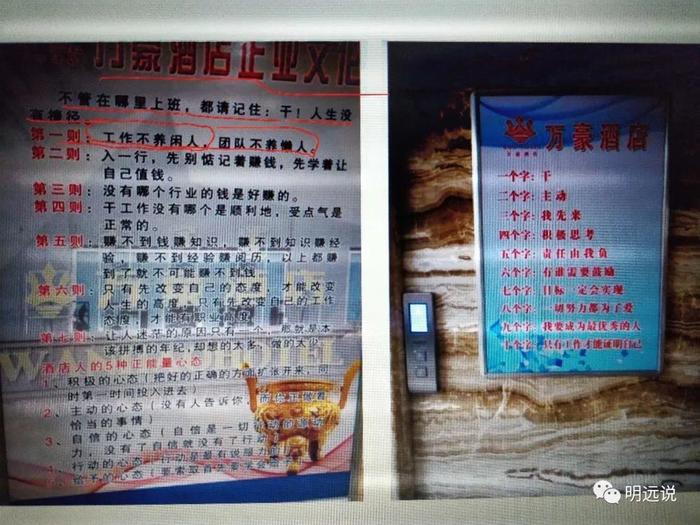 万豪酒店企业文化
不管在哪里上班，都请记住：干！人生没
有捷径
第一则：工作不养闲人，团队不养懒人。
第二则：入一行，先别惦记着赚钱，先学着让
自己值钱。
第三则：没有哪个行业的钱是好赚的。
第四则：干工作没有哪个是顺利地，受点气是
正常的。
第五则：赚不到钱赚知识，赚不到知识赚经
验，赚不到经验赚阅历，以上都赚
到了就不可能赚不到钱。
第六则：只有先改变自己的态度，才能改变
人生的高度，只有先改变自己的工作
态度，才能有职业高度
第七则：让人迷茫的原因只有一个，那就是本
该拼搏的年纪，却想的太多，做的太少
酒店人的5种正能量心态
1、积极的心态（把好的正确的方面扩张开来，同
时第一时间投入进去）
2、主动的心态（没有人告诉你，而你正做着
恰当的事情）
3、自信的心态（自信是一切行动的源动
力，没有了自信就没有了行动）
4、行动的心态（行动是最有说服力的
5、给予的心态（要索取首先要学会给予
万豪酒店
一个字：干
二个字：主动
三个字：我先来
四个字：积极思考
五个字：责任由我负
六个字：有谁需要鼓励
七个字：目标一定会实现
八个字：一切努力都为了爱
九个字：我要成为最优秀的人
十个字：只有工作才能证明自己
明远说